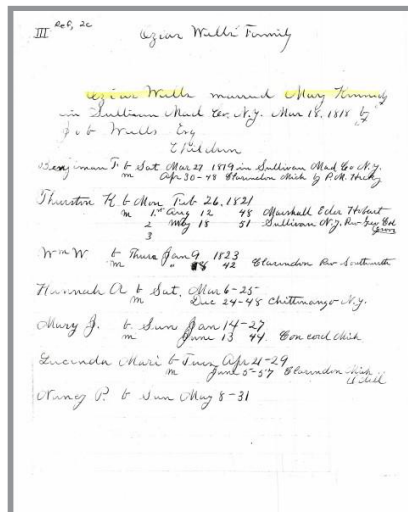 III Ref, 2c
Oziar Wells Family
Oziar Wells married Mary Kennedy
in Sullivan Mad Co. N.Y. Mar 18, 1818 by
Job Wells Esq
Children
Benjiman F. b Sat Mar 27 1819 in Sullivan Mad Co N.Y.
m Apr 30-48 Clarendon Mich by P.M.
Thurston K. b Mon Feb 26, 1821
m 1st Aug 12 48 Marshall Elder Hobart
2 May 18 51 Sullivan N.Y. Rev
3
Wm W b Thurs Jan 9 1823
m " 18 42 Clarendon Rev Southworth
Hannah A b Sat. Mar 6-25
m Dec 24-48 Chittenango N.Y.
Mary J. b Sun Jan 14-27
m June 13 44 Concord Mich
Lucinda Mari b Tues Apr 21-29
m June 5-57 Clarendon Mich
Nancy P. b Sun May 8-31